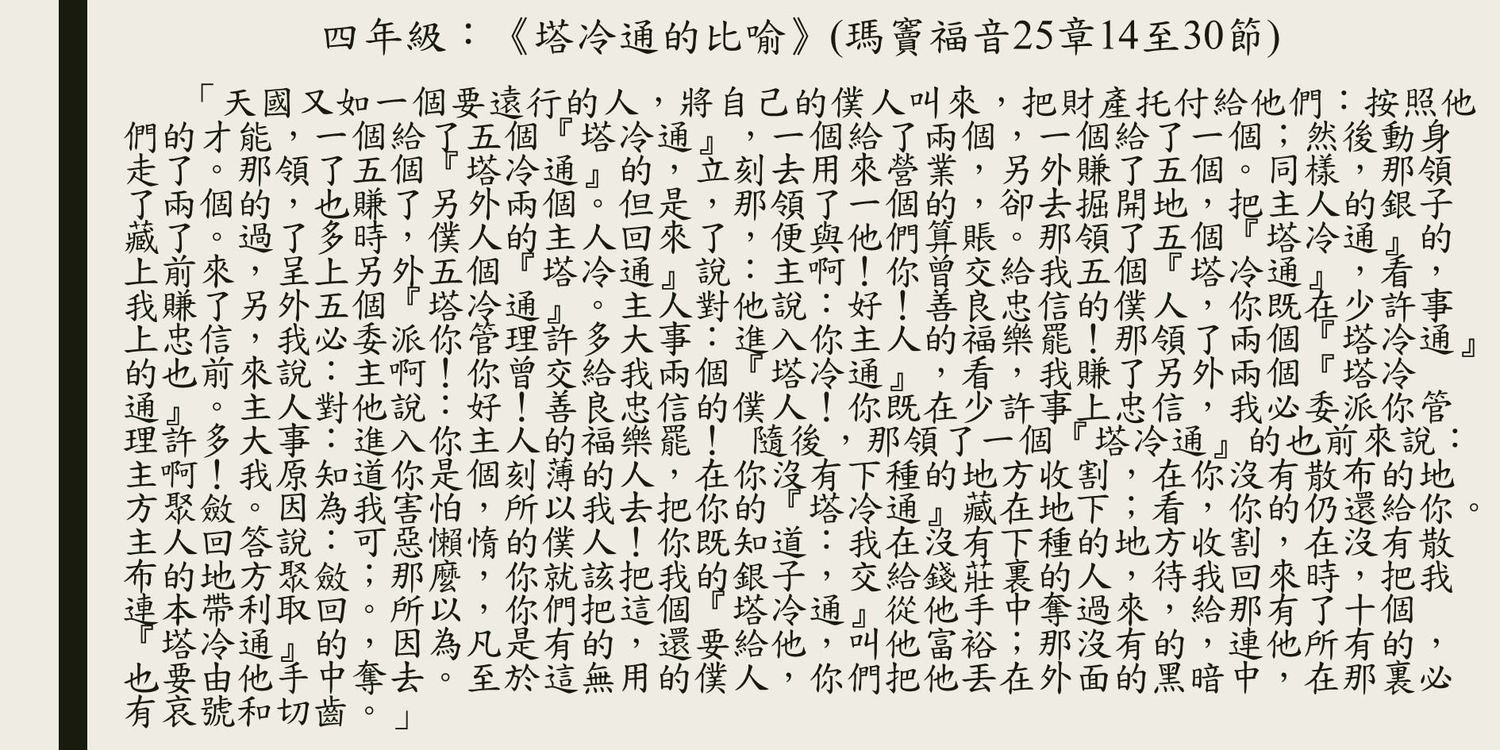 四年級：《塔冷通的比喻》(瑪竇福音25章14至30節)
「天國又如一個要遠行的人，將自己的僕人叫來，把財產托付給他們：按照他
們的才能，一個給了五個『塔冷通』，一個給了兩個，一個給了一個；然後動身
走了。那領了五個『塔冷通』的，立刻去用來營業，另外賺了五個。同樣，那領
了兩個的，也賺了另外兩個。但是，那領了一個的，卻去掘開地，把主人的銀子
藏了。過了多時，僕人的主人回來了，便與他們算賬。那領了五個『塔冷通』的
上前來，呈上另外五個『塔冷通』說：主啊！你曾交給我五個『塔冷通』，看，
我賺了另外五個『塔冷通』。主人對他說：好！善良忠信的僕人，你既在少許事
上忠信，我必委派你管理許多大事：進入你主人的福樂罷！那領了兩個『塔冷通』
的也前來說：主啊！你曾交給我兩個『塔冷通』，看，我賺了另外兩個『塔冷
通』。主人對他說：好！善良忠信的僕人！你既在少許事上忠信，我必委派你管
理許多大事：進入你主人的福樂罷！ 隨後，那領了一個『塔冷通』的也前來說：
主啊！我原知道你是個刻薄的人，在你沒有下種的地方收割，在你沒有散布的地
方聚斂。因為我害怕，所以我去把你的『塔冷通』藏在地下；看，你的仍還給你。
主人回答說：可惡懶惰的僕人！你既知道：我在沒有下種的地方收割，在沒有散
布的地方聚斂；那麼，你就該把我的銀子，交給錢莊裏的人，待我回來時，把我
連本帶利取回。所以，你們把這個『塔冷通』從他手中奪過來，給那有了十個
『塔冷通』的，因為凡是有的，還要給他，叫他富裕；那沒有的，連他所有的，
也要由他手中奪去。至於這無用的僕人，你們把他丟在外面的黑暗中，在那裏必
有哀號和切齒。」